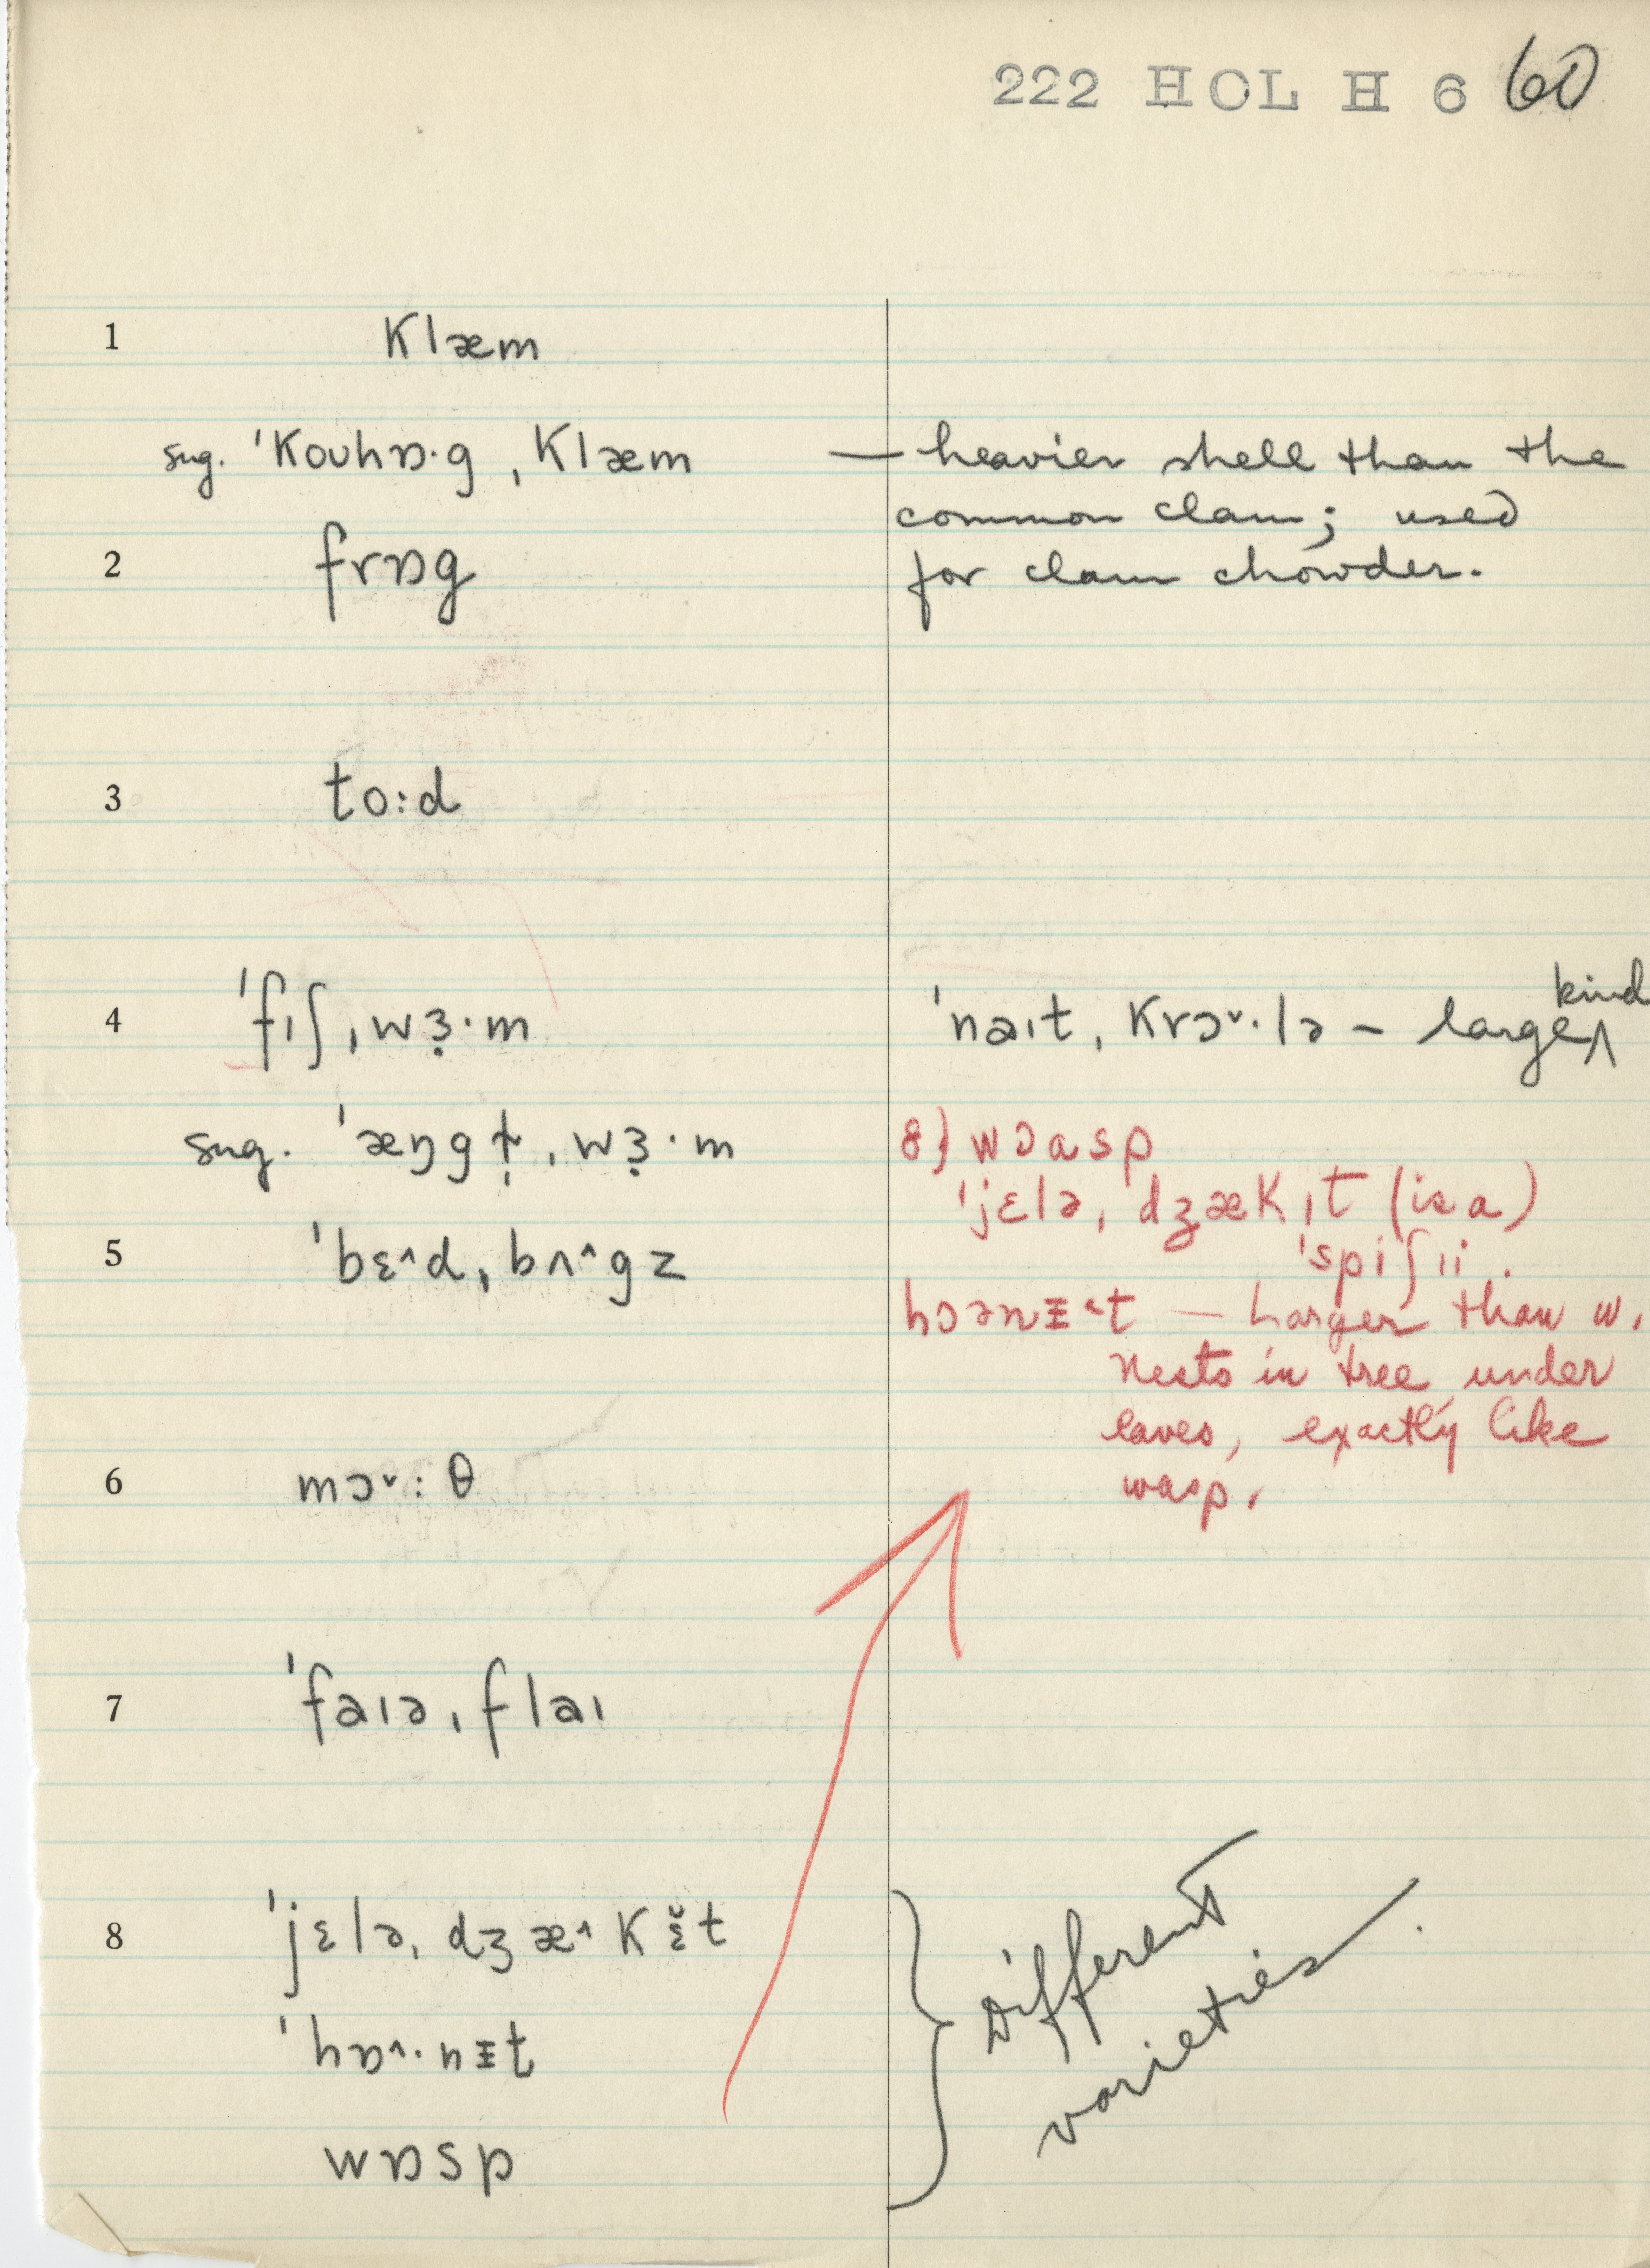 222 HOL H 6 60
1 klæm
sug. ˈkouhɒ·g ˌklæm — heavier shell than the
common clam; used
2 frɒg for clam chowder.
3 to:d
4 ˈfɪʃˌwɜ̣·m ˈnaɪtˌkrɔ˅·lə – large kind
sug. ˈæŋgɫ̣ˌwɜ̣·m
8) wɔasp
ˈjɛləˌdʒækɪt (is a)
5 ˈbɛ˄dˌbʌ˄gz
ˈspiʃii.
hɔənᵻ˂t — Larger than w.
Nests in tree, under
eaves, exactly like
6 mɔ˅:θ wasp.
7 ˈfaɪəˌflaɪ
8 ˈjɛləˌdʒæ˄kɛ̆t
ˈhɒ˄·nᵻt
wɒsp
Different
varieties.